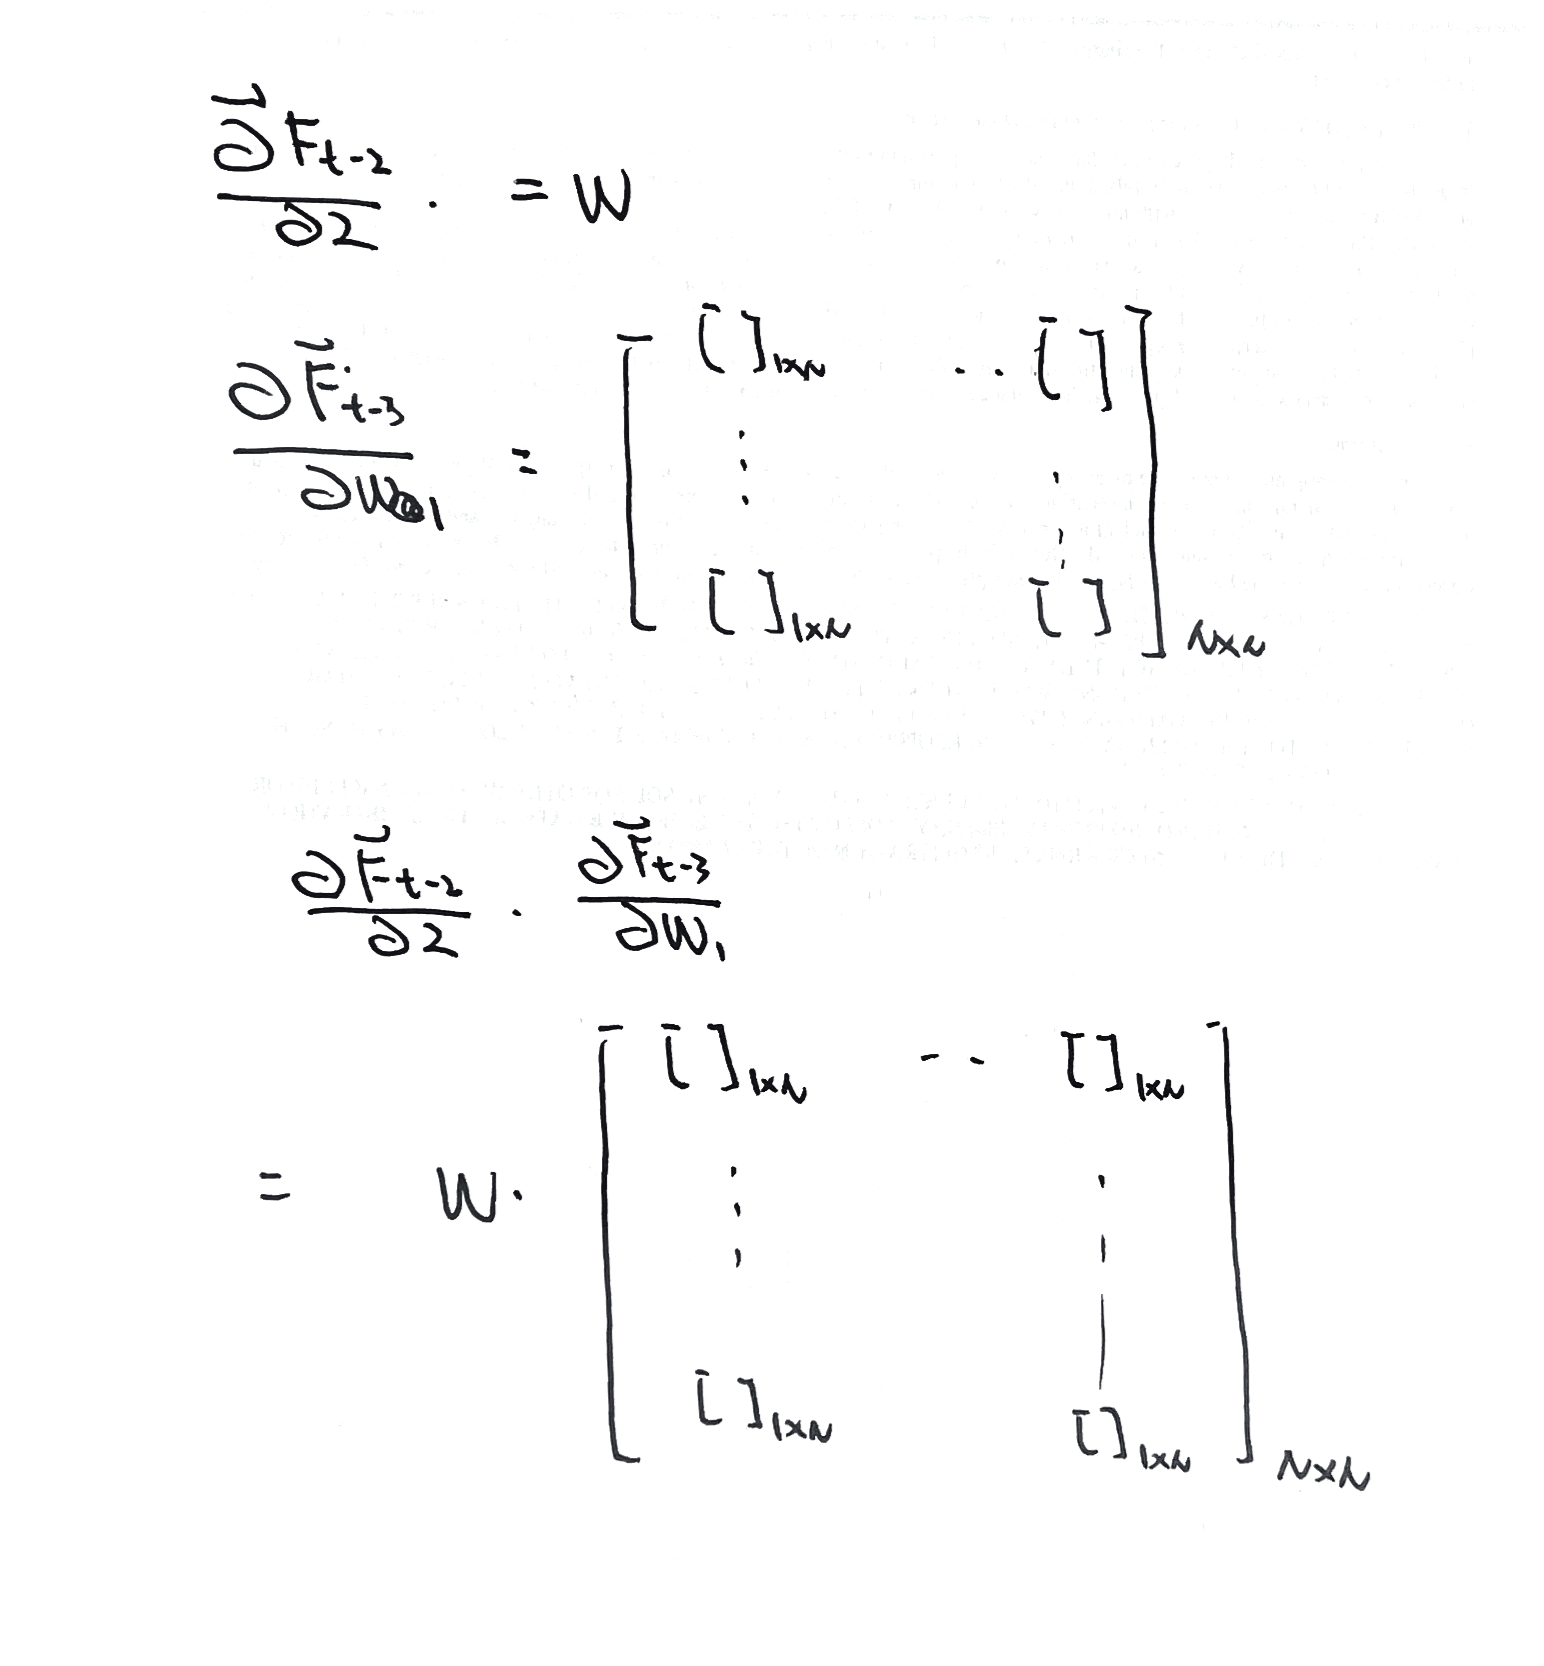 ∂⃗F_{t-2}/∂2 · = W
∂F⃗_{t-3}/∂W_1 = [ [ ]_{1×N} ·· [ ] ⋮ ⋮ [ ]_{1×N} [ ] ]_{N×N}
∂F⃗_{t-2}/∂2 · ∂F⃗_{t-3}/∂W_1
= W· [ [ ]_{1×N} -- [ ]_{1×N} ⋮ ⋮ [ ]_{1×N} [ ]_{1×N} ]_{N×N}